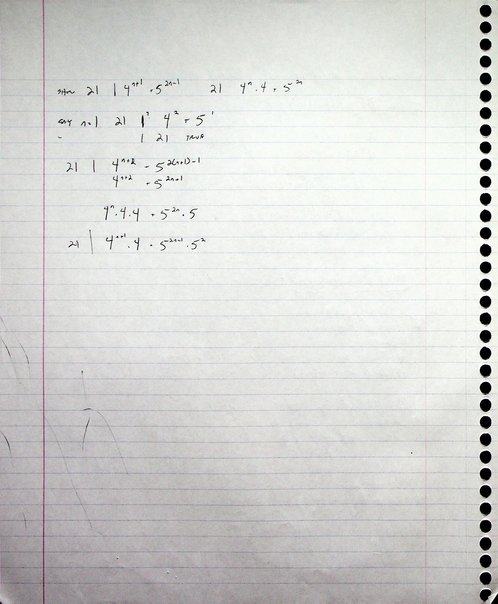 show 21 | 4^{n+1} + 5^{2n-1} 21 4^n · 4 + 5^{2n}
say n=1 21 |^? 4^2 + 5^1
| 21 TRUE
21 | 4^{n+2} + 5^{2(n+1)-1}
4^{n+2} + 5^{2n+1}
4^n · 4 · 4 + 5^{2n} · 5
21 | 4^{n+1} · 4 + 5^{2n-1} · 5^2